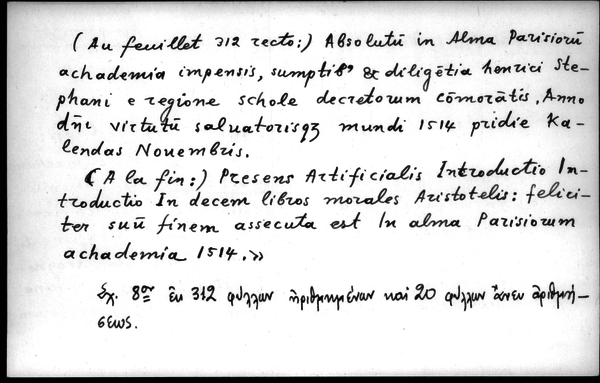 (Au feuillet 312 recto:) Absolutū in Alma Parisiorū
achademia impensis, sumptibꝰ & diligētia henrici Ste-
phani e regione schole decretorum cōmorātis. Anno
dn̄i virtutū saluatorisqꝫ mundi 1514 pridie Ka-
lendas Nouembris.
(A la fin:) Presens Artificialis Introductio In-
troductio In decem libros morales Aristotelis: felici-
ter suū finem assecuta est In alma Parisiorum
achademia 1514.»
Σχ. 8ον ἐκ 312 φύλλων ἠριθμημένων καὶ 20 φύλλων ἄνευ ἀριθμή-
σεως.